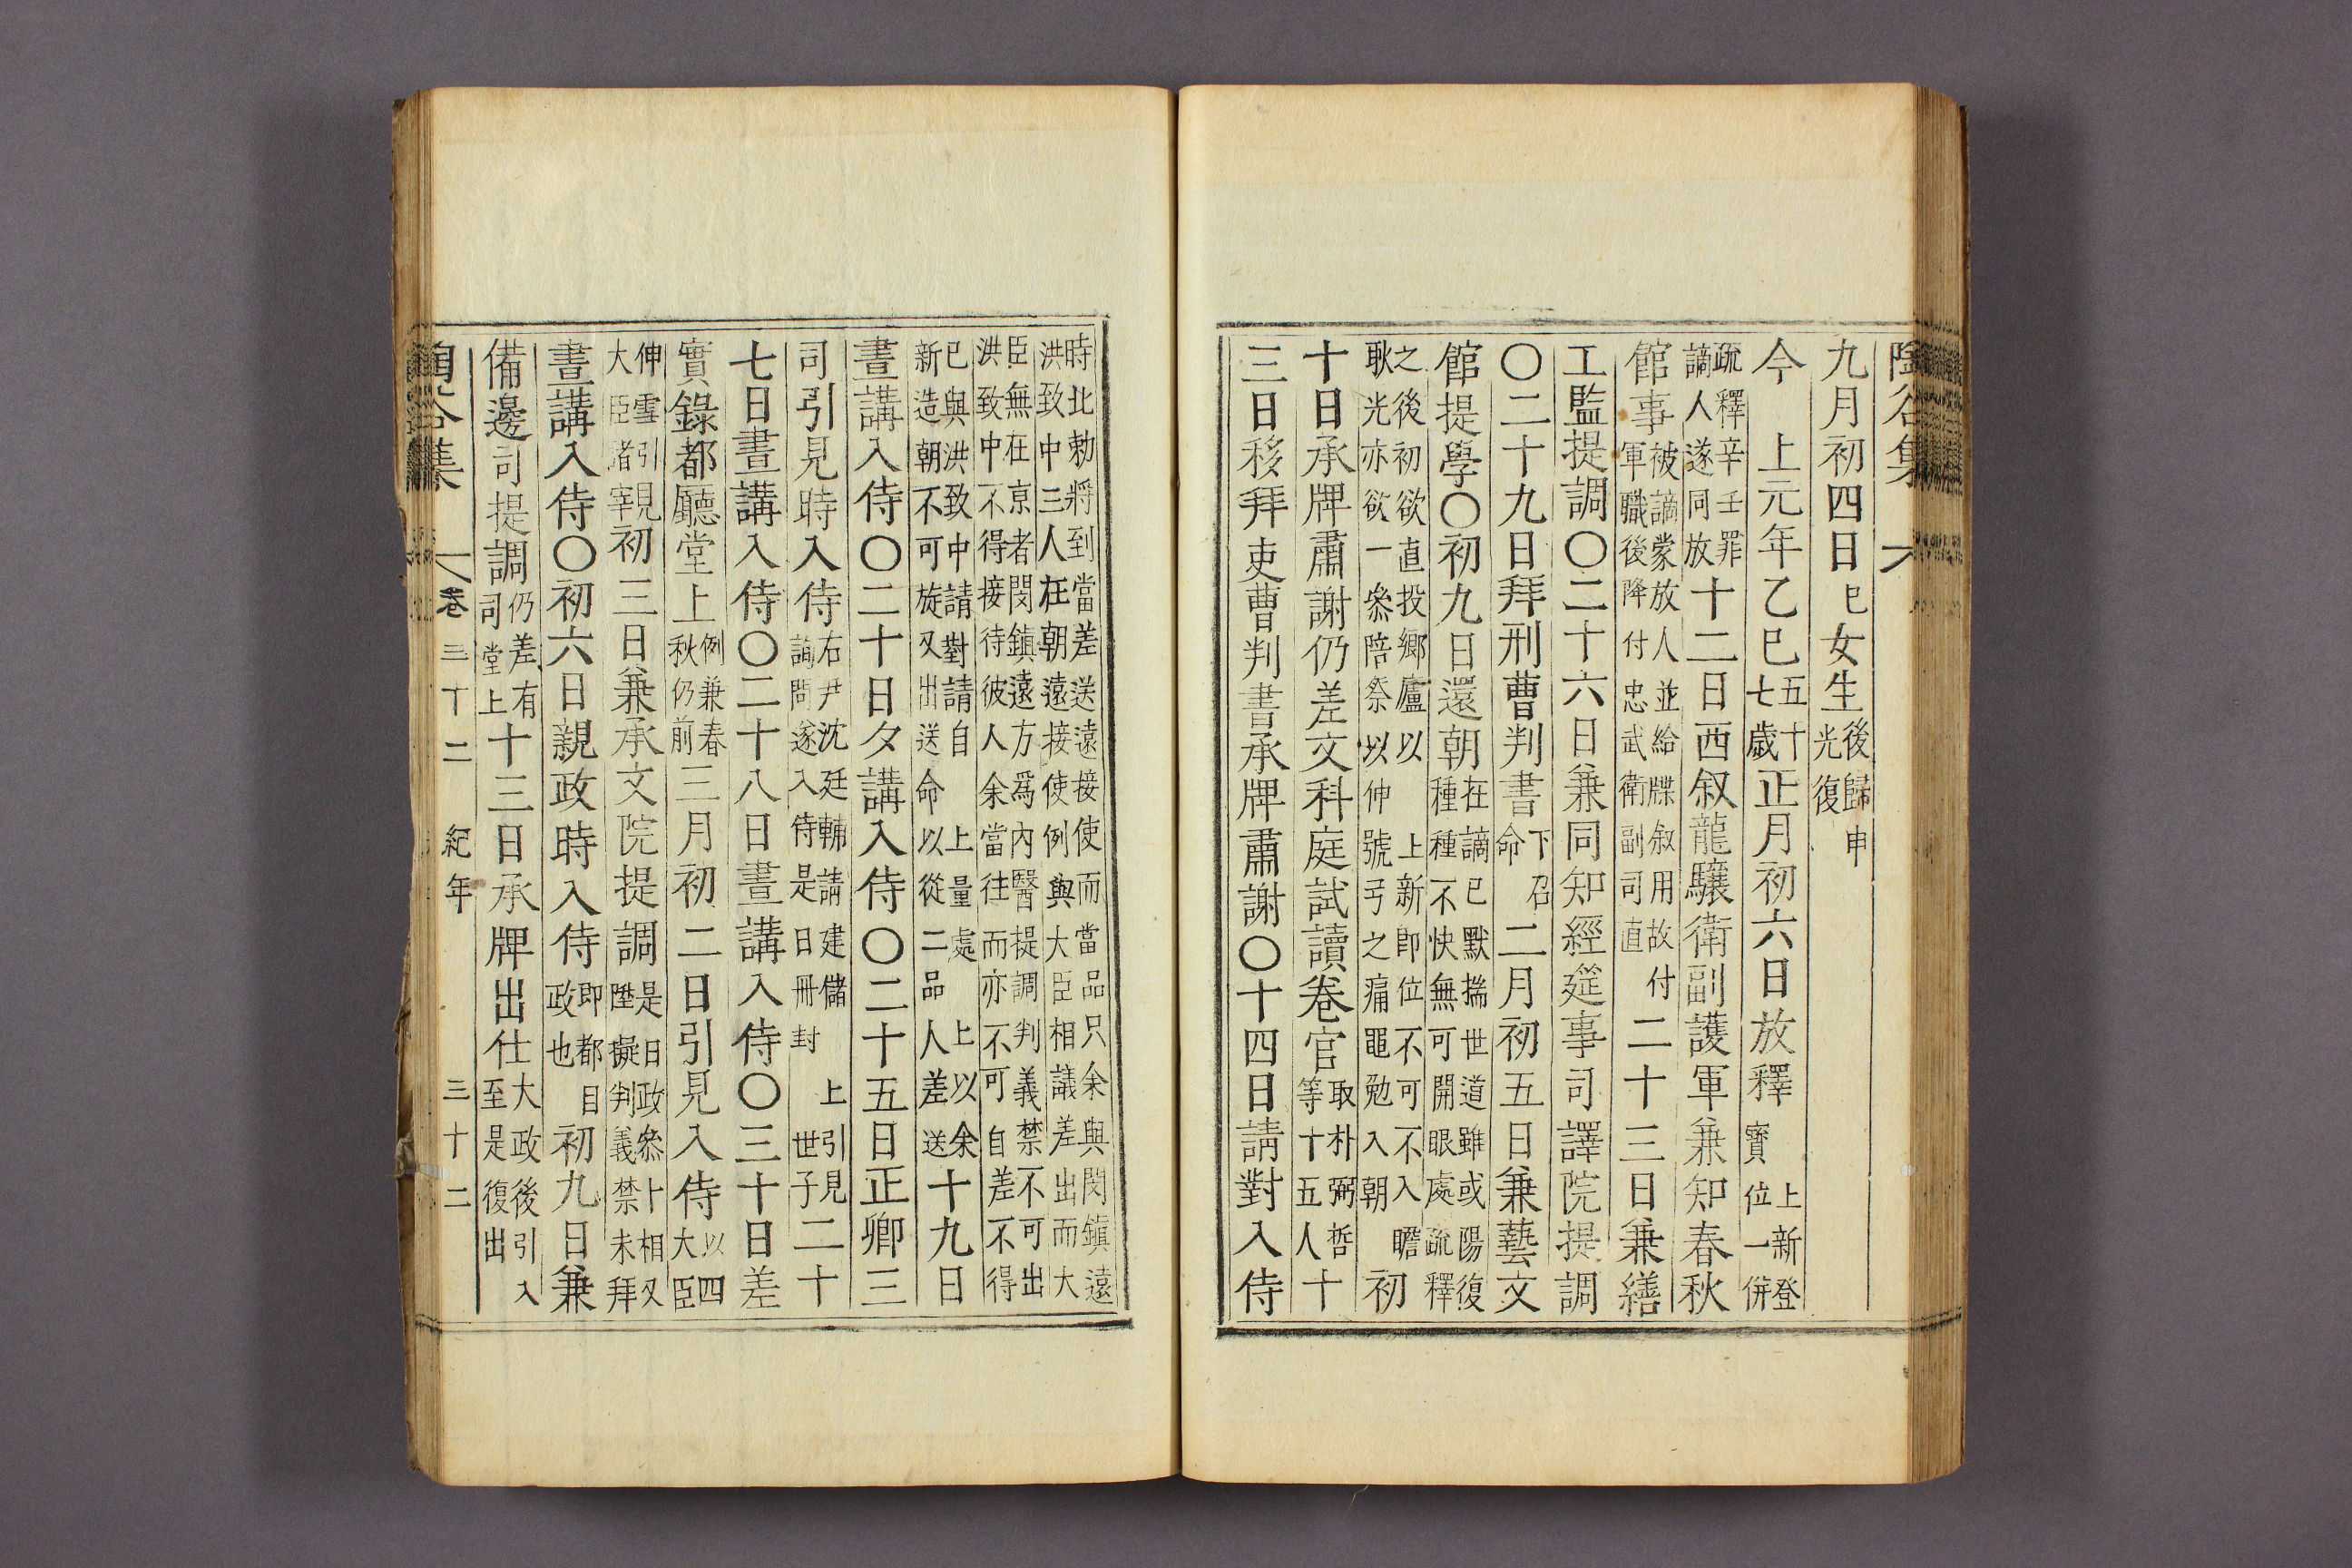 陶谷集
九月初四日巳女生後歸申光復
今上元年乙巳五十七歲正月初六日放釋上新登寶位一倂
疏釋辛壬罪謫人遂同放十二日西叙龍驤衛副護軍兼知春秋
館事被謫蒙放人並給牒叙用故付軍職後降付忠武衛副司直二十三日兼繕
工監提調〇二十六日兼同知經筵事司譯院提調
〇二十九日拜刑曹判書下召命二月初五日兼藝文
館提學〇初九日還朝在謫已默揣世道雖或陽復種種不快無可開眼處疏釋
之後初欲直投鄕廬以上新卽位不可不入瞻耿光亦欲一叅陪祭以伸號弓之痛黽勉入朝初
十日承牌肅謝仍差文科庭試讀卷官取朴弼哲等十五人十
三日移拜吏曹判書承牌肅謝〇十四日請對入侍
時北勅將到當差送遠接使而當品只余與閔鎭遠洪致中三人在朝遠接使例與大臣相議差出而大
臣無在京者閔鎭遠方爲內醫提調判義禁不可出洪致中不得接待彼人余當往而亦不可自差不得
已與洪致中請對請自上量處上以余新造朝不可旋又出送命以從二品人差送十九日
晝講入侍〇二十日夕講入侍〇二十五日正卿三
司引見時入侍右尹沈廷輔請建儲上引見詢問遂入侍是日冊封世子二十
七日晝講入侍〇二十八日晝講入侍〇三十日差
實錄都廳堂上例兼春秋仍前三月初二日引見入侍以四大臣
伸雪引見大臣諸宰初三日兼承文院提調是日政叅卜相又陞擬判義禁未拜
晝講入侍〇初六日親政時入侍卽都目政也初九日兼
備邊司提調仍差有司堂上十三日承牌出仕大政後引入至是復出
陶谷集 卷三十二 紀年 三十二